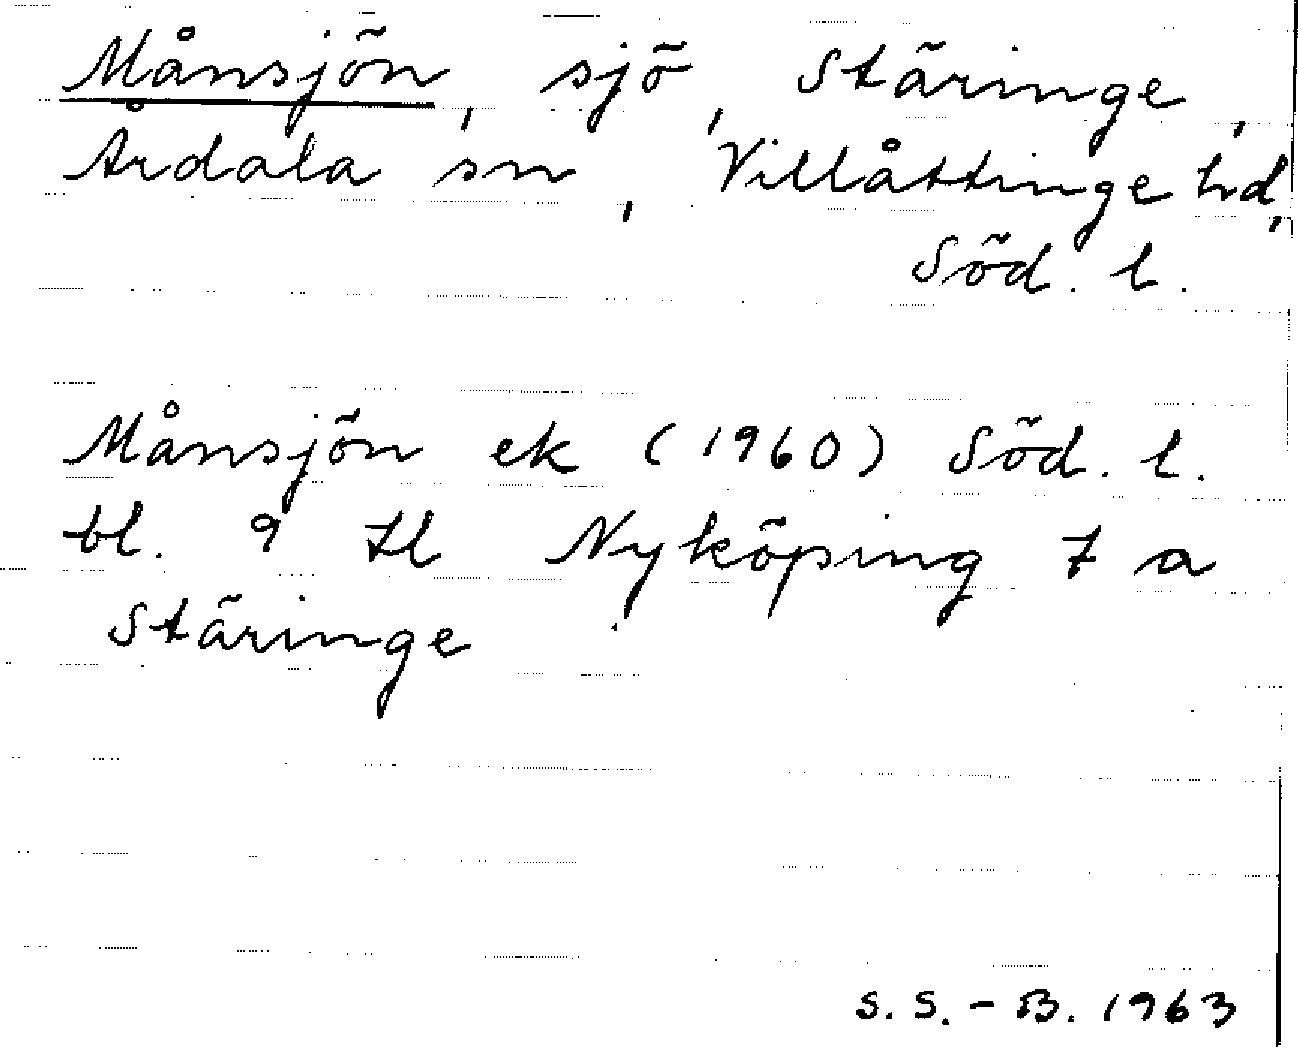 Månsjön, sjö, Stäringe,
Årdala sn, Villåttinge hd,
Söd. l.
Månsjön ek (1960) Söd. l.
bl. 9 tl Nyköping 7 a
Stäringe
S. S. - B. 1963